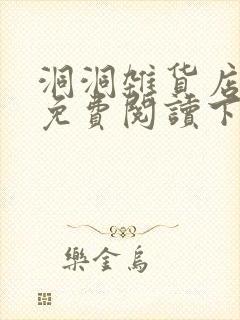 洞洞雜貨店
免費閱讀下
樂金烏